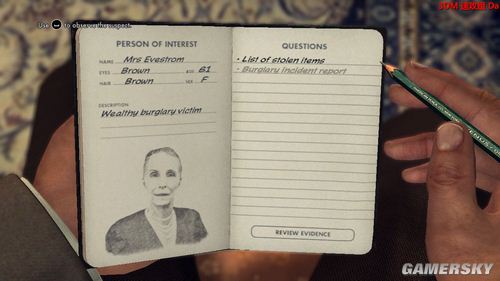 Use to observe the suspect.
PERSON OF INTEREST
NAME Mrs Evestrom
EYES Brown AGE 61
HAIR Brown SEX F
DESCRIPTION
Wealthy burglary victim
QUESTIONS
• List of stolen items
• Burglary incident report
REVIEW EVIDENCE
GAMERSKY